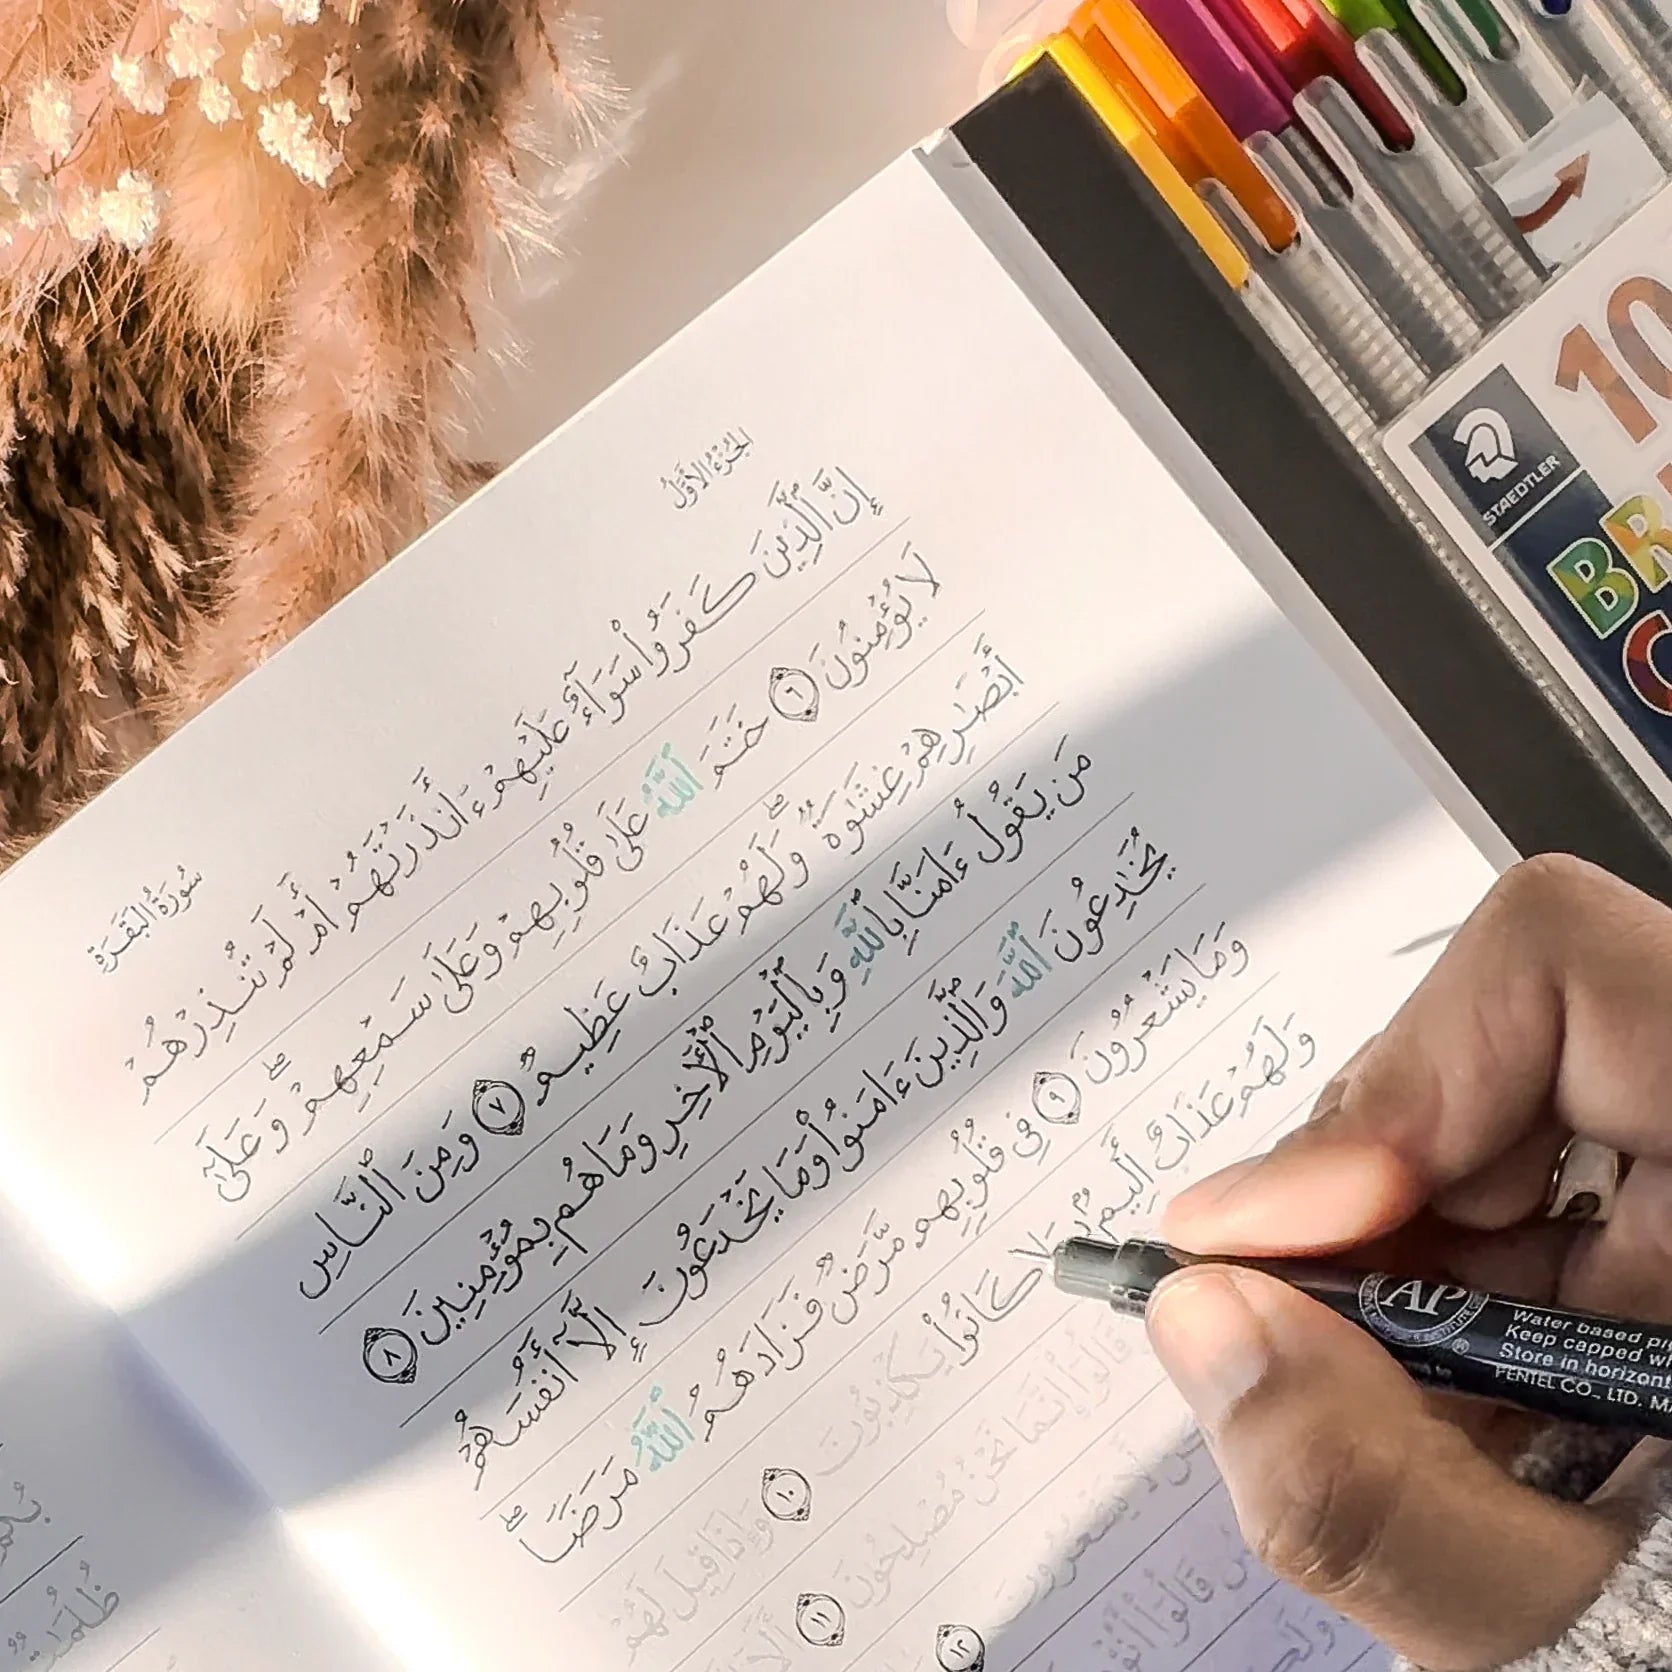 الجُزْءُ الأَوَّلُ
سُورَةُ البَقَرَةِ
إِنَّ ٱلَّذِينَ كَفَرُوا۟ سَوَآءٌ عَلَيْهِمْ ءَأَنذَرْتَهُمْ أَمْ لَمْ تُنذِرْهُمْ
لَا يُؤْمِنُونَ ٦ خَتَمَ ٱللَّهُ عَلَىٰ قُلُوبِهِمْ وَعَلَىٰ سَمْعِهِمْ ۖ وَعَلَىٰٓ
أَبْصَٰرِهِمْ غِشَٰوَةٌ ۖ وَلَهُمْ عَذَابٌ عَظِيمٌ ٧ وَمِنَ ٱلنَّاسِ
مَن يَقُولُ ءَامَنَّا بِٱللَّهِ وَبِٱلْيَوْمِ ٱلْءَاخِرِ وَمَا هُم بِمُؤْمِنِينَ ٨
يُخَٰدِعُونَ ٱللَّهَ وَٱلَّذِينَ ءَامَنُوا۟ وَمَا يَخْدَعُونَ إِلَّآ أَنفُسَهُمْ
وَمَا يَشْعُرُونَ ٩ فِى قُلُوبِهِم مَّرَضٌ فَزَادَهُمُ ٱللَّهُ مَرَضًا ۖ
وَلَهُمْ عَذَابٌ أَلِيمٌۢ كَانُوا۟ يَكْذِبُونَ ١٠ وَإِذَا قِيلَ لَهُمْ
قَالُوٓا۟ إِنَّمَا نَحْنُ مُصْلِحُونَ ١١
لَّا يَشْعُرُونَ ١٢
قَالُوٓا۟
ظُلُمَٰتٌ
STAEDTLER
10
AP
Water based
Keep capped
Store in horizont
PENTEL CO., LTD.